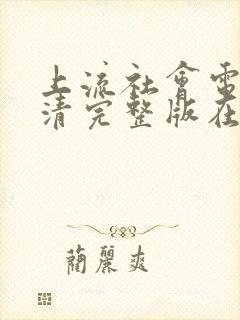 上流社會電
清完整版在
蘭麗爽